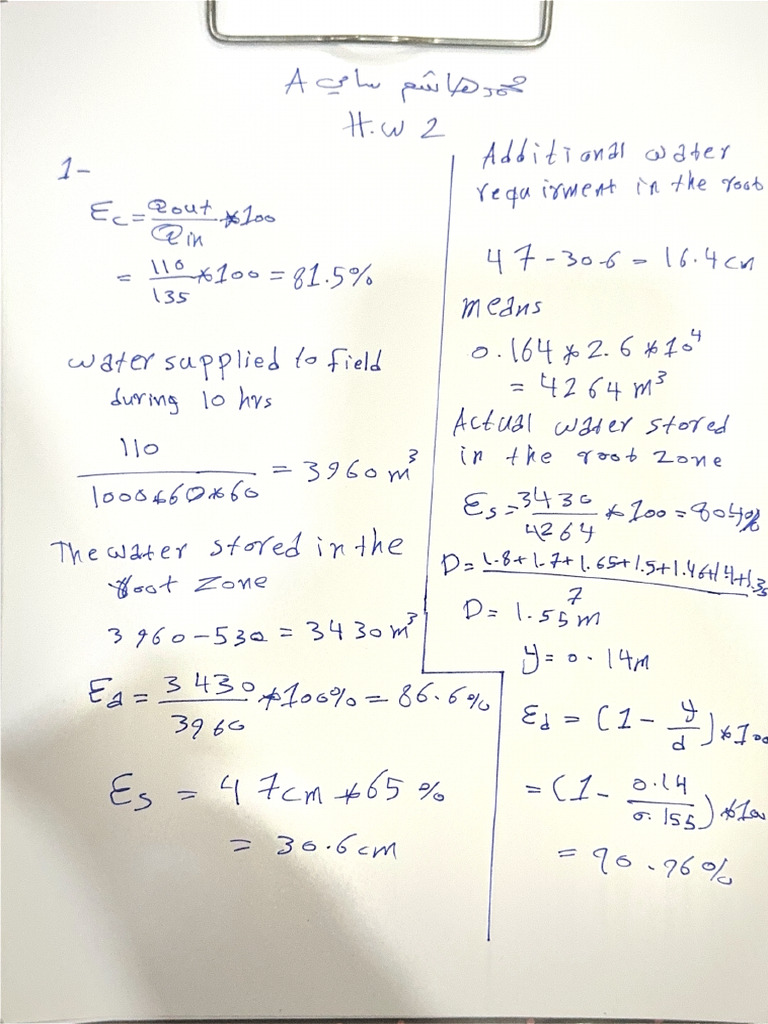 محمد هاشم سامي A
H.W 2
1-
Ec = Qout / Qin * 100
= 110 / 135 * 100 = 81.5%
water supplied to field
during 10 hrs
110 / 1000*60*60 = 3960 m³
The water stored in the
root zone
3960 - 530 = 3430 m³
Ea = 3430 / 3960 * 100% = 86.6%
Es = 47cm * 65%
= 30.6cm
Additional water
requirment in the root
47 - 30.6 = 16.4 cm
means
0.164 * 2.6 * 10⁴
= 4264 m³
Actual water stored
in the root zone
Es = 3430 / 4264 * 100 = 80.4%
D = 1.8+1.7+1.65+1.5+1.46+1.4+1.35 / 7
D = 1.55m
y = 0.14m
Ed = (1 - y / d) * 100
= (1 - 0.14 / 0.155) * 100
= 90.96%